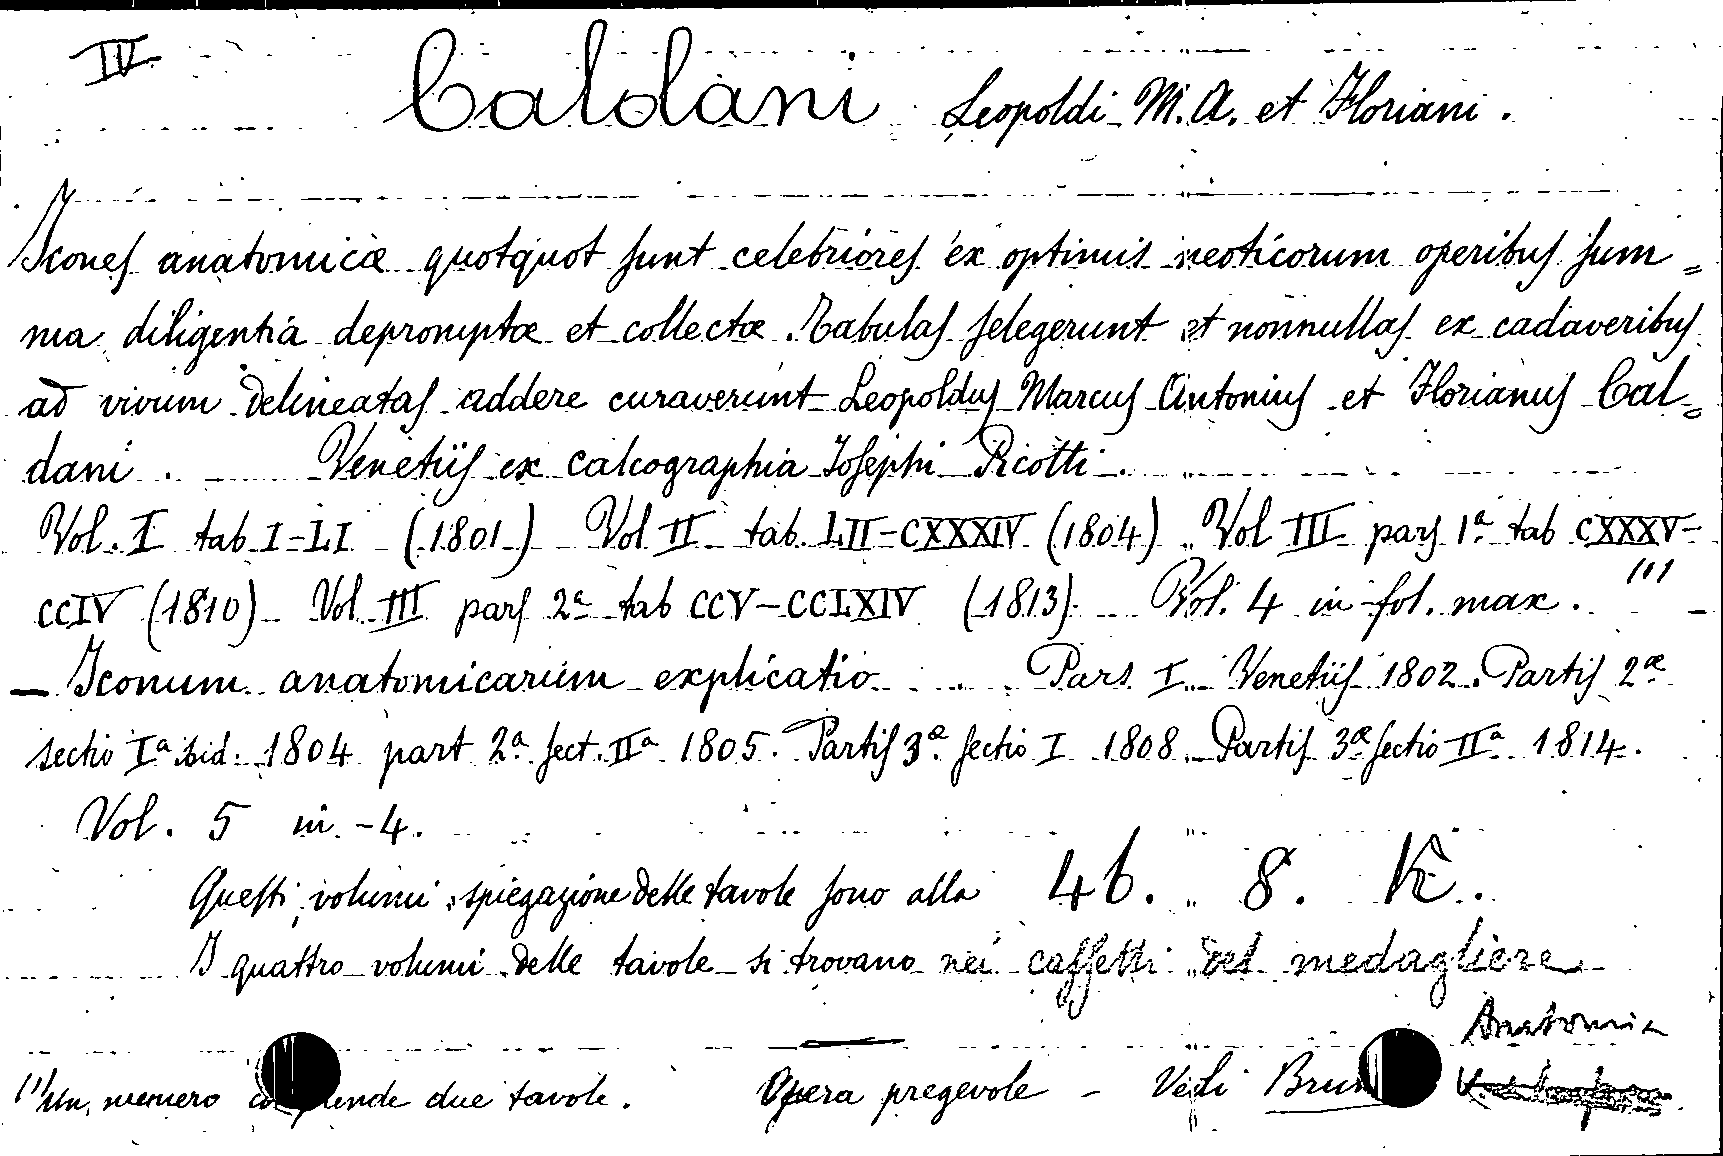 IV
Caldani Leopoldi M. A. et Floriani.
Icones anatomicæ quotquot sunt celebriores ex optimis neoticorum operibus sum=
ma diligentia depromptæ et collectæ. Tabulas selegerunt et nonnullas ex cadaveribus
ad vivum delineatas addere curaverunt Leopoldus Marcus Antonius et Florianus Cal=
dani. Venetiis ex calcographia Josephi Picotti.
Vol. I tab I-LI (1801) Vol II tab. LII-CXXXIV (1804) Vol III pars 1ª tab CXXXV-
CCIV (1810) Vol III pars 2ª tab CCV-CCLXIV (1813). Vol. 4 in-fol. max. (1) -
- Iconum anatomicarum explicatio Pars I. Venetiis 1802. Partis 2æ
sectio Iª ibid. 1804 part 2ª sect. IIª 1805. Partis 3æ sectio I 1808 Partis 3æ sectio IIª 1814.
Vol. 5 in-4.
Questi volumi, spiegazione delle tavole sono alla 46. 8. K.
I quattro volumi delle tavole si trovano nei cassetti del medagliere
Anatomia
(1) Un numero comprende due tavole. Opera pregevole - Vedi